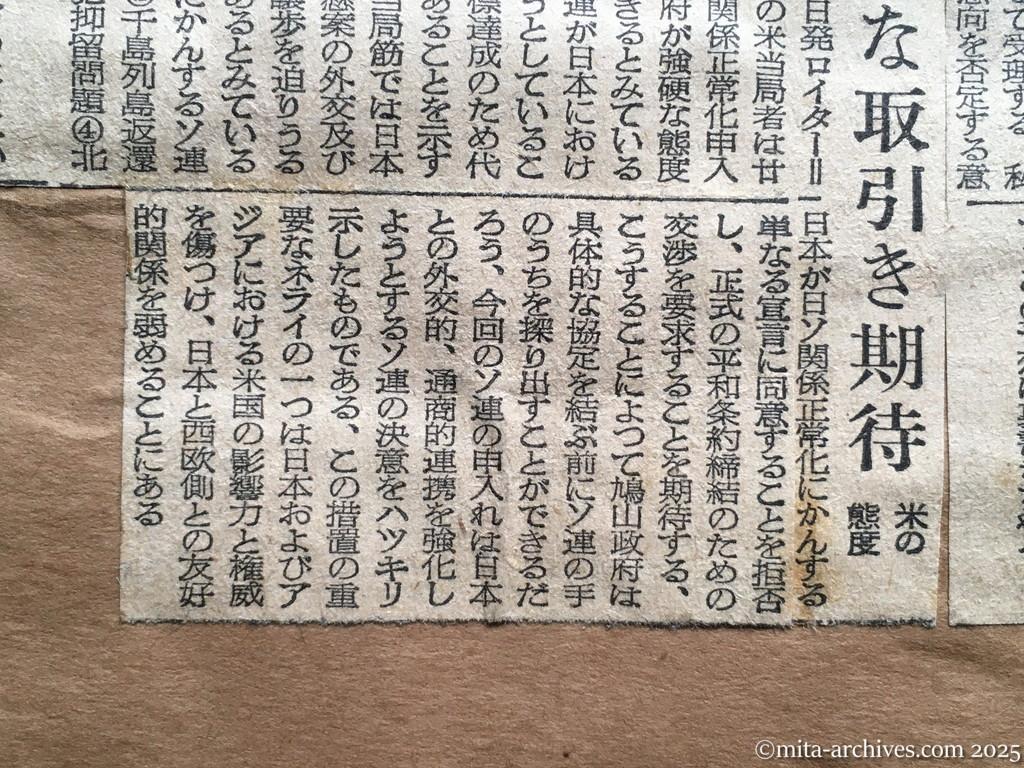 て受理する
意向を否定する意
な取引き期待
米の
態度
日発ロイター＝
の米当局者は廿
関係正常化申入
府が強硬な態度
きるとみている
連が日本におけ
うとしているこ
標達成のため代
あることを示す
当局筋では日本
懸案の外交及び
譲歩を迫りうる
あるとみている
にかんするソ連
③千島列島返還
犯抑留問題④北
日本が日ソ関係正常化にかんする
単なる宣言に同意することを拒否
し、正式の平和条約締結のための
交渉を要求することを期待する、
こうすることによつて鳩山政府は
具体的な協定を結ぶ前にソ連の手
のうちを探り出すことができるだ
ろう、今回のソ連の申入れは日本
との外交的、通商的連携を強化し
ようとするソ連の決意をハツキリ
示したものである、この措置の重
要なネライの一つは日本およびア
ジアにおける米国の影響力と権威
を傷つけ、日本と西欧側との友好
的関係を弱めることにある
©mita-archives.com 2025